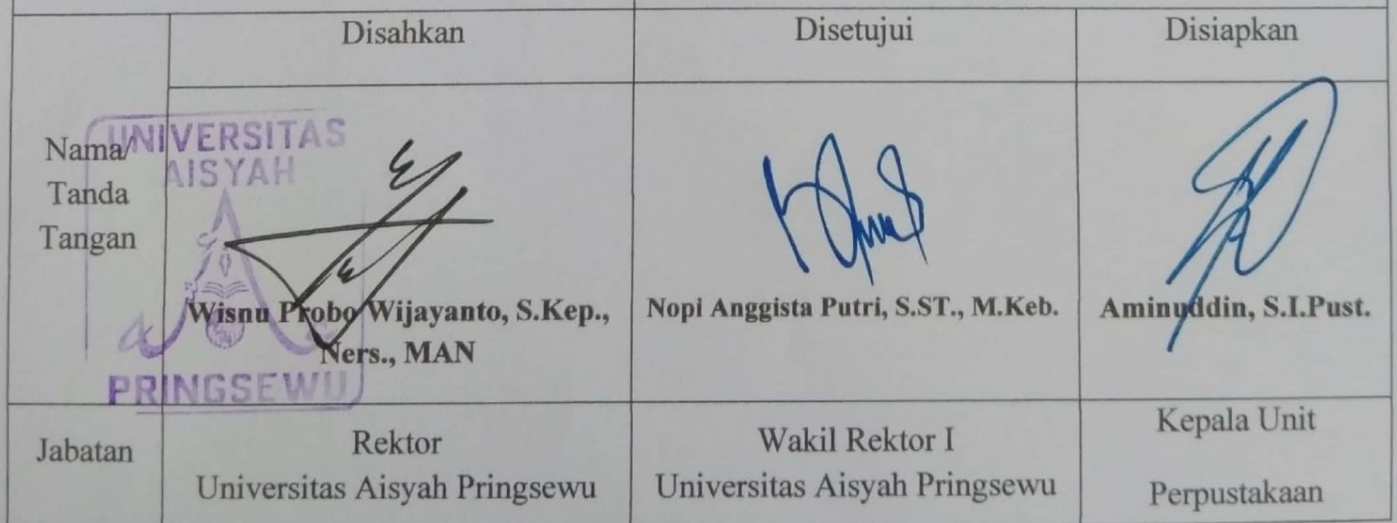 Disahkan
Disetujui
Disiapkan
Nama/
Tanda
Tangan
UNIVERSITAS
AISYAH
PRINGSEWU
Wisnu Probo Wijayanto, S.Kep.,
Ners., MAN
Nopi Anggista Putri, S.ST., M.Keb.
Aminuddin, S.I.Pust.
Jabatan
Rektor
Universitas Aisyah Pringsewu
Wakil Rektor I
Universitas Aisyah Pringsewu
Kepala Unit
Perpustakaan